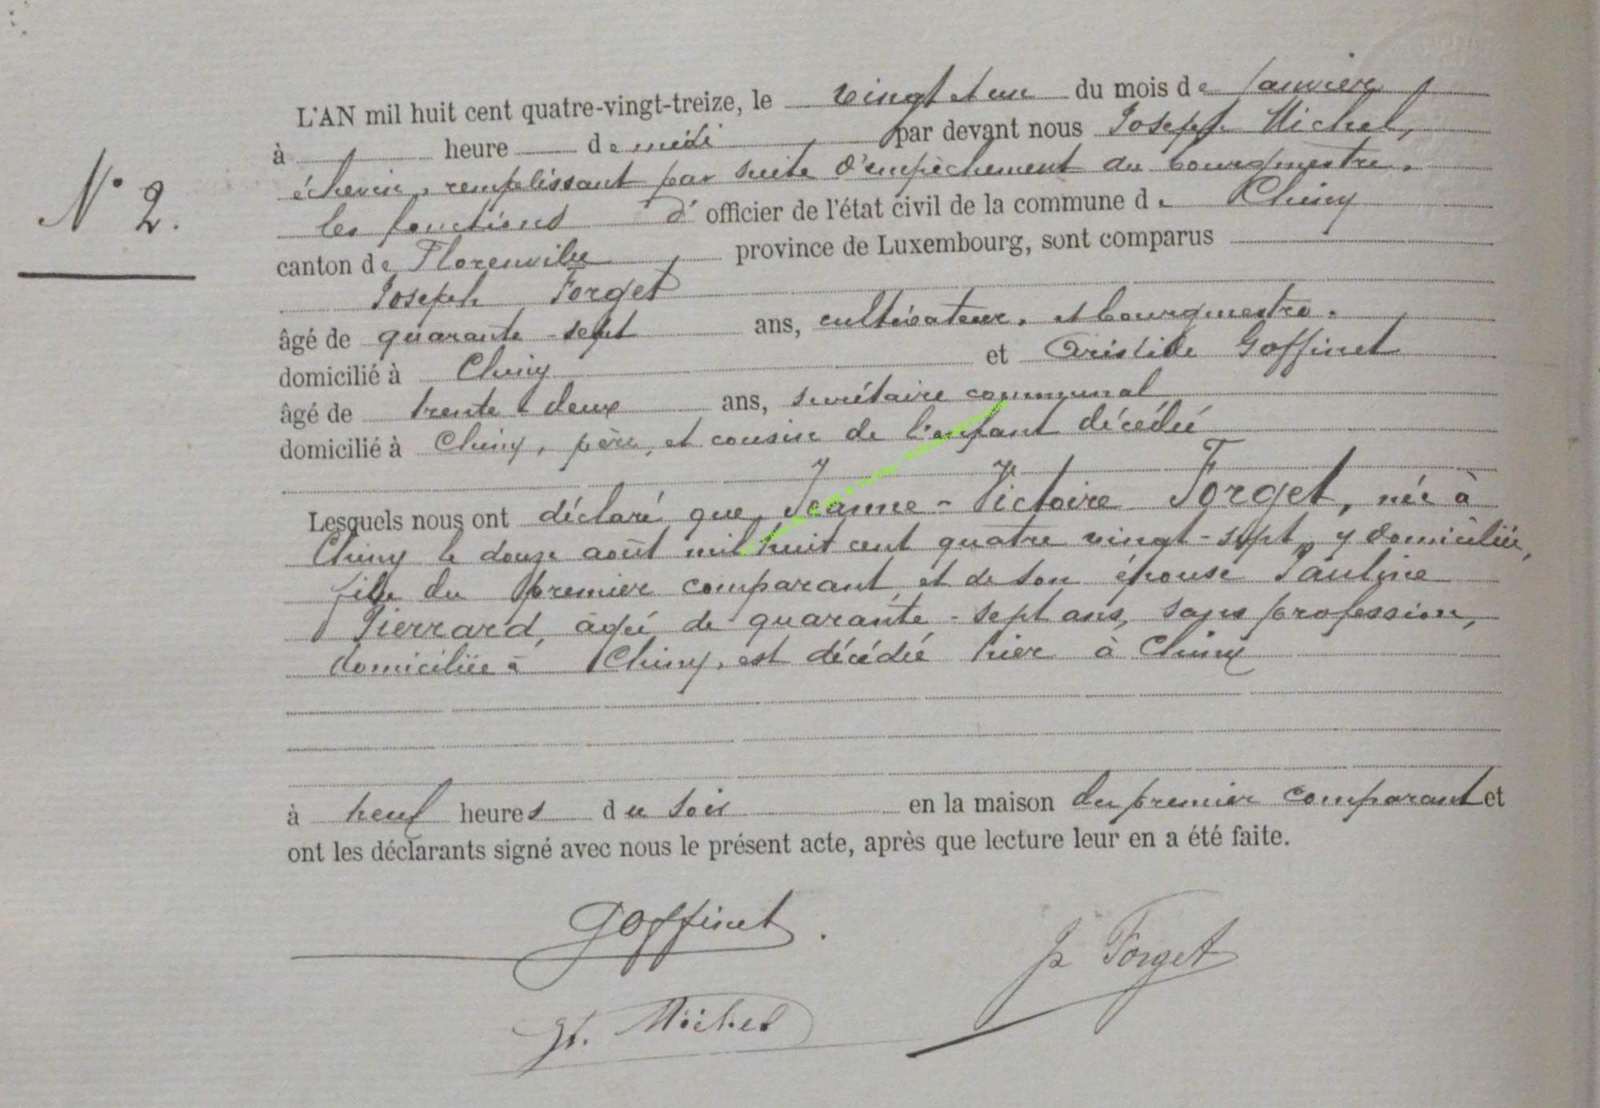 L'AN mil huit cent quatre-vingt-treize, le vingt et un du mois de janvier,
à heure de midi par devant nous Joseph Michel,
N° 2.
échevin, remplissant par suite d'empêchement du bourgmestre,
les fonctions d'officier de l'état civil de la commune de Chiny
canton de Florenville, province de Luxembourg, sont comparus
Joseph Forget
âgé de quarante-sept ans, cultivateur, et bourgmestre,
domicilié à Chiny et Aristide Goffinet
âgé de trente-deux ans, secrétaire communal
domicilié à Chiny, père, et cousin de l'enfant décédée
Lesquels nous ont déclaré que Jeanne-Victoire Forget, née à
Chiny le douze août mil huit cent quatre vingt-sept, y domiciliée,
fille du premier comparant, et de son épouse Pauline
Pierrard, âgée de quarante-sept ans, sans profession,
domiciliée à Chiny, est décédée hier à Chiny
à neuf heures du soir en la maison du premier comparant et
ont les déclarants signé avec nous le présent acte, après que lecture leur en a été faite.
Goffinet.
Js Forget
Js. Michel